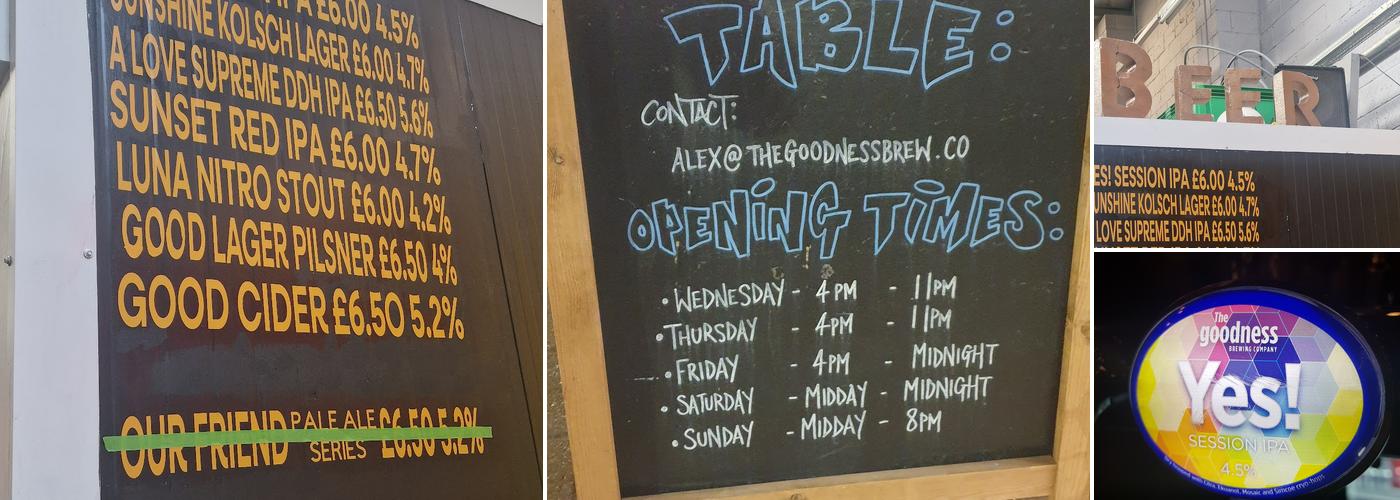 IPA £6.00 4.5%
SUNSHINE KOLSCH LAGER £6.00 4.7%
A LOVE SUPREME DDH IPA £6.50 5.6%
SUNSET RED IPA £6.00 4.7%
LUNA NITRO STOUT £6.00 4.2%
GOOD LAGER PILSNER £6.50 4%
GOOD CIDER £6.50 5.2%
OUR FRIEND PALE ALE SERIES £6.50 5.2%
TABLE:
CONTACT:
ALEX@THEGOODNESSBREW.CO
OPENING TIMES:
• WEDNESDAY - 4PM - 11PM
• THURSDAY - 4PM - 11PM
• FRIDAY - 4PM - MIDNIGHT
• SATURDAY - MIDDAY - MIDNIGHT
• SUNDAY - MIDDAY - 8PM
BEER
ES! SESSION IPA £6.00 4.5%
UNSHINE KOLSCH LAGER £6.00 4.7%
LOVE SUPREME DDH IPA £6.50 5.6%
The
goodness
BREWING COMPANY
Yes!
SESSION IPA
4.5%
with Citra, Ekuanot, Mosaic and Simcoe cryo-hops